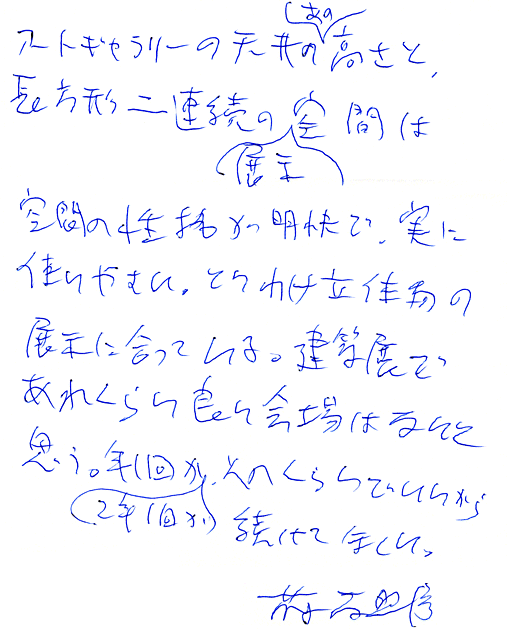 アートギャラリーの天井の(あの)高さと、
長方形二連続の(展示)空間は
空間の性格が明快で、実に
使いやすい。とりわけ立体物の
展示に合っている。建築展で
あれくらい良い会場はないと
思う。年1回か、(2年1回か)そのくらいでいいから
続けてほしい。
藤森照信